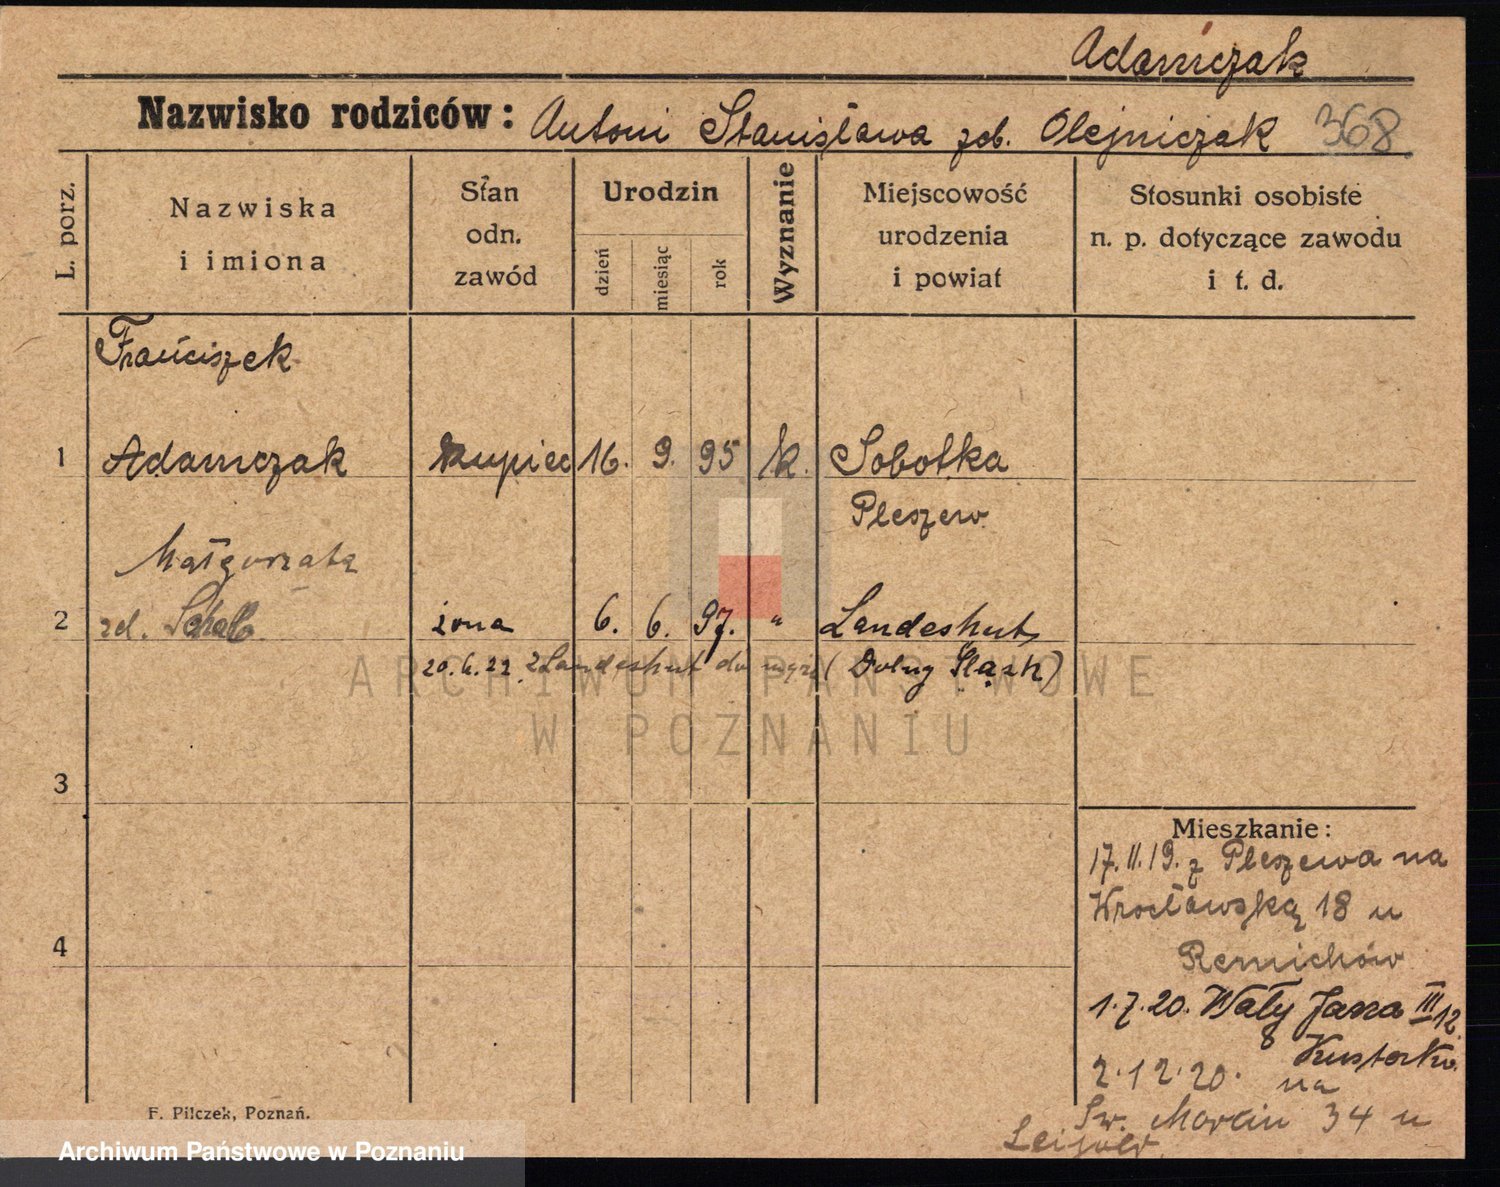 Adamczak
Nazwisko rodziców: Antoni Stanisława zob. Olejniczak 368
L. porz.
Nazwiska
i imiona
Stan
odn.
zawód
Urodzin
dzień
miesiąc
rok
Wyznanie
Miejscowość
urodzenia
i powiat
Stosunki osobiste
n. p. dotyczące zawodu
i t. d.
Franciszek
1 Adamczak kupiec 16. 9. 95 k. Sobotka
Pleszew
Małgorzata
2 żona 6. 6. 97. " Landeshut
20.6.22. z Landeshut do (Dolny Śląsk)
3
4
Mieszkanie:
17.11.19. z Pleszewa na
Wrocławską 18 u
Remichów
1.7.20. Wały Jana III 12
2.12.20. na
Św. Marcin 34 u
F. Pilczek, Poznań.
ARCHIWUM PAŃSTWOWE
W POZNANIU
Archiwum Państwowe w Poznaniu